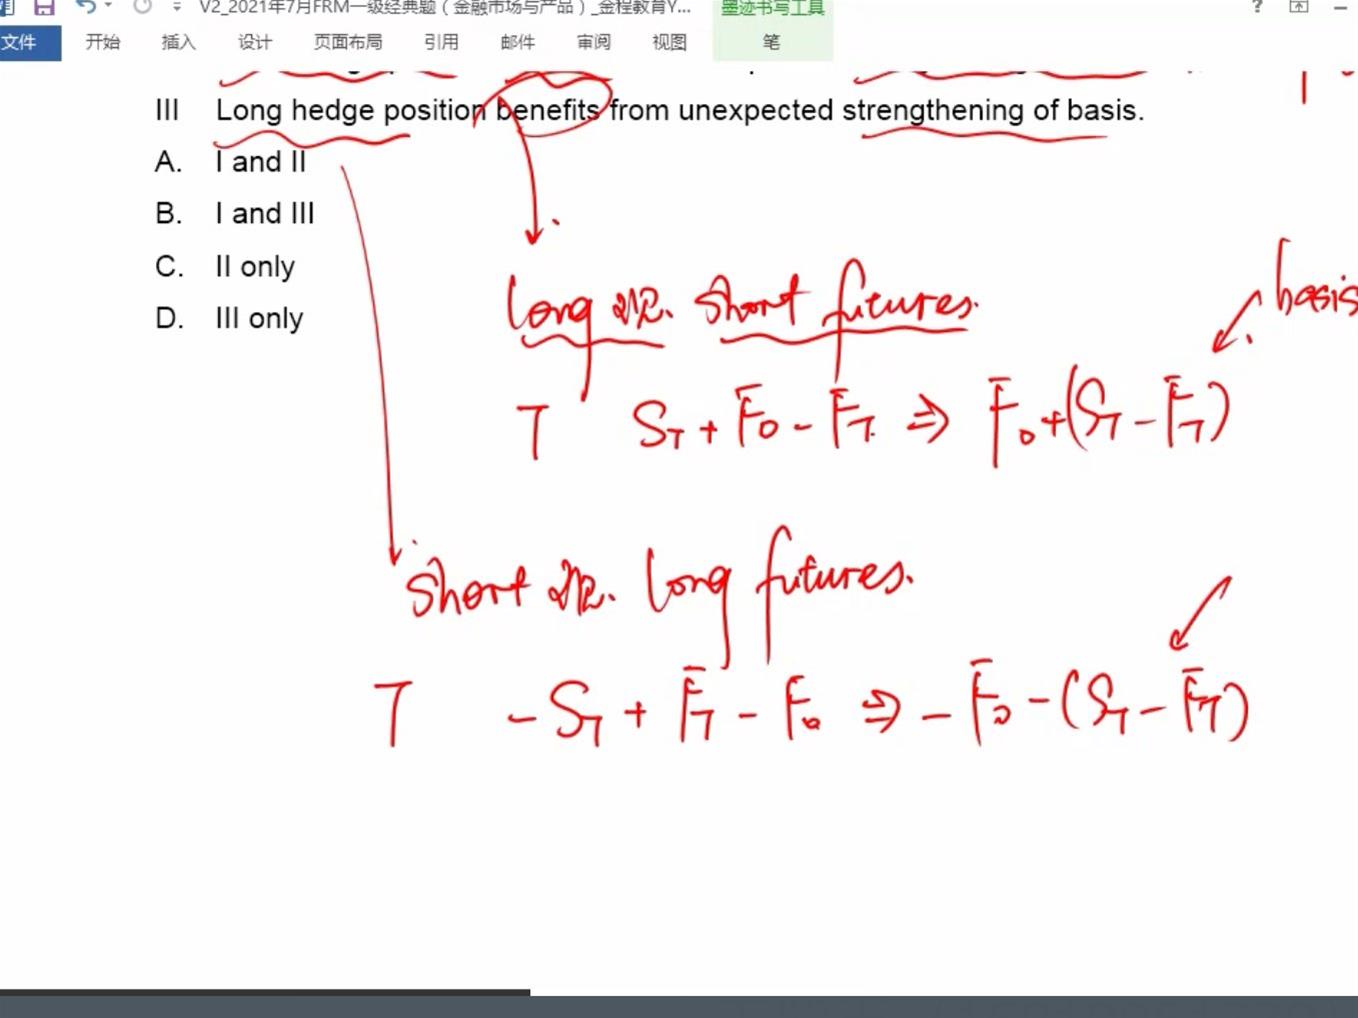 V2_2021年7月FRM一级经典题（金融市场与产品）_金程教育Y... 墨迹书写工具 ?
文件 开始 插入 设计 页面布局 引用 邮件 审阅 视图 笔
III Long hedge position benefits from unexpected strengthening of basis.
A. I and II
B. I and III
C. II only
D. III only
basis
long 现. short futures.
T S_T + F_0 - F_T ⇒ F_0 + (S_T - F_T)
short 现. long futures.
T - S_T + F_T - F_0 ⇒ - F_0 - (S_T - F_T)